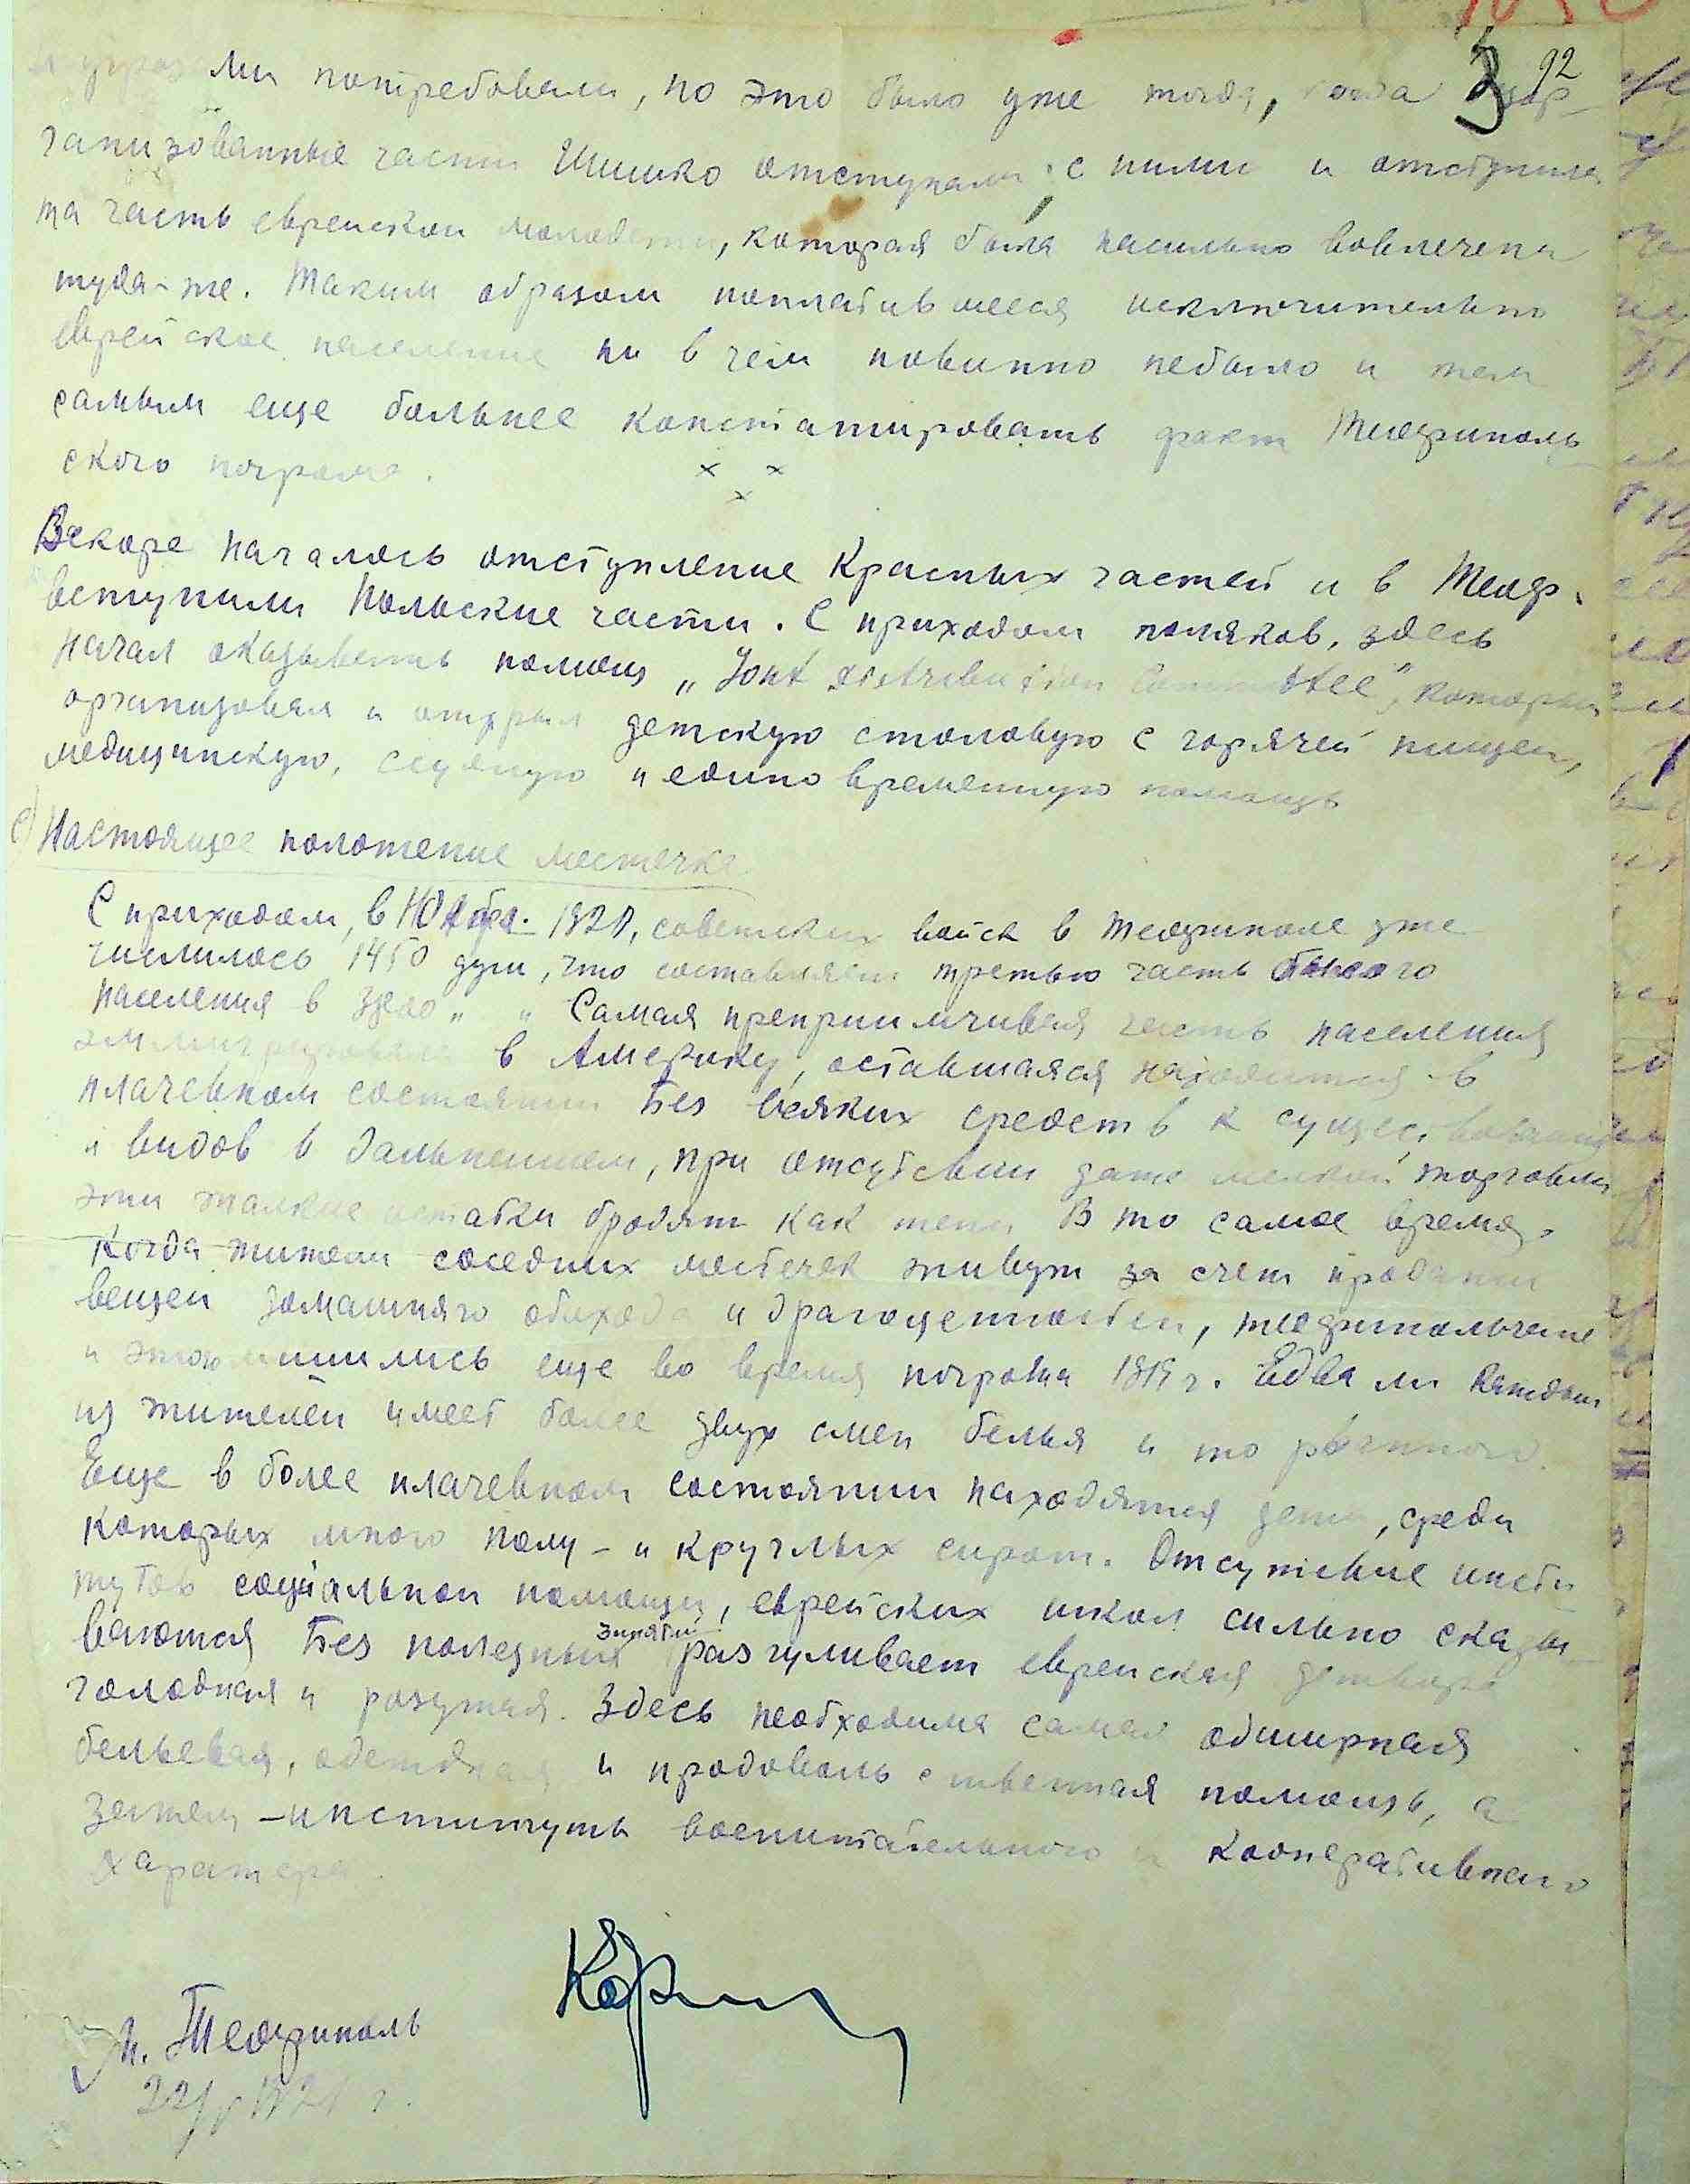 3 92
угрозами потребовали, но это было уже тогда, когда дезор-
ганизованные части Шишко отступали; с ними и отступила
та часть еврейской молодежи, которая была насильно вовлечена
туда-же. Таким образом поплатившееся исключительно
еврейское население ни в чем повинно небыло и тем
самым еще больнее констатировать факт Теофиполь-
ского погрома.
x x
x
Вскоре началось отступление Красных частей и в Теоф.
вступили Польские части. С приходом поляков, здесь
начал оказывать помощ „Joint distribution Committee", который
организовал и открыл детскую столовую с горячей пищей,
медицинскую, ссудную и единовременную помощь
е) Настоящее положение местечка
С приходом, в 192 , советских войск в Теофиполе уже
числилось 1450 душ, что составляет третью часть бывшого
населения в " " Самая преприимчивая часть населения
эмигрировала в Америку, оставшаяся находится в
плачевном состоянии Без всяких средств к существованию
и видов в дальнейшем, при отсутсвии даже мелкой торговли
эти жалкие остатки бродят как тени В то самое время,
когда жители соседних местечек живут за счет продажи
вещей домашняго обихода и драгоценностей, теофипольчане
и этого лишились еще во время погрома 1919 г. Едва ли каждый
из жителей имеет более двух смен белья и то рваннаго.
Еще в более плачевном состоянии находятся дети, среди
которых много полу- и круглых сирот. Отсутствие инсти-
тутов социальной помощи, еврейских школ сильно сказы-
ваются Без полезных занятий разгуливает еврейская детвора
голодная и разутая. Здесь необходима самая обширная
бельевая, одеждная и продовольственная помощь, а
затем - институты воспитательного и кооперативнаго
характера.
м. Теофиполь
22/V 1921 г.